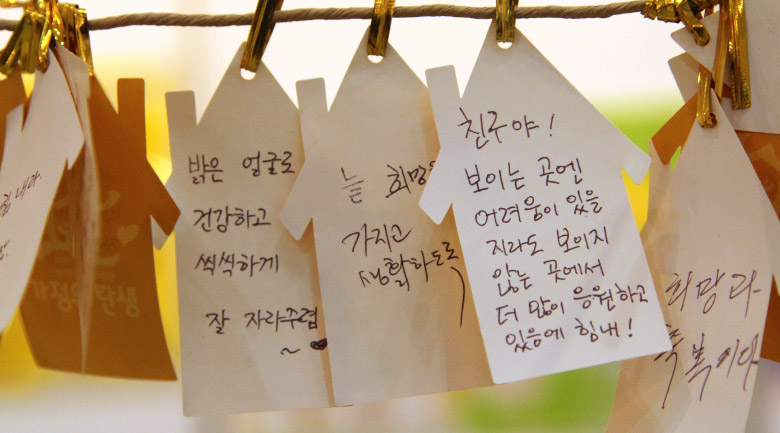 힘내라.
가정의 탄생
밝은 얼굴로
건강하고
씩씩하게
잘 자라주렴
~
늘 희망을
가지고
생활하도록
친구야!
보이는 곳엔
어려움이 있을
지라도 보이지
않는 곳에서
더 많이 응원하고
있음에 힘내!
희망과
축복이다